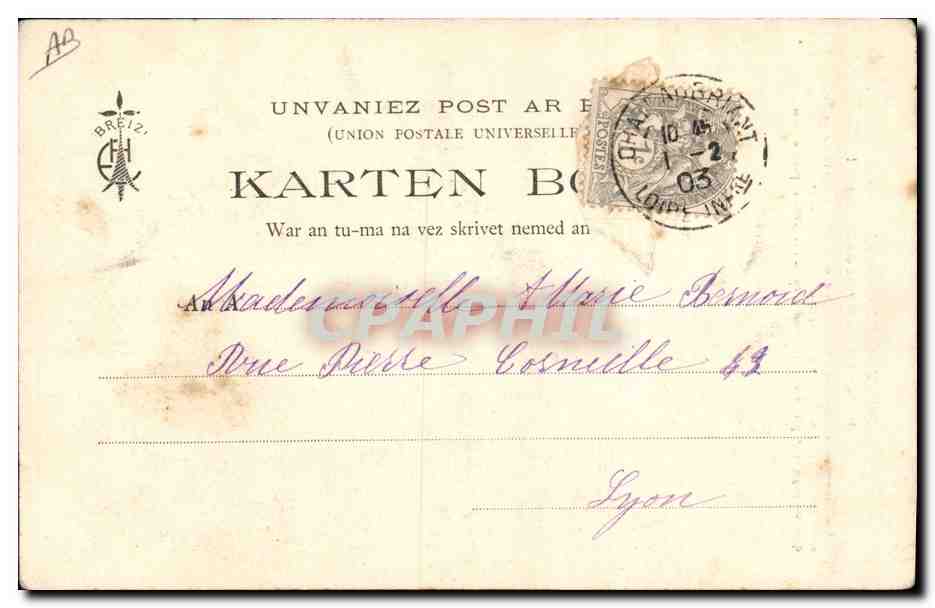 AB
BREIZ'
UNVANIEZ POST AR
(UNION POSTALE UNIVERSELLE
KARTEN
War an tu-ma na vez skrivet nemed an
POSTES
1c
10 45
1 -2
03
LOIRE INFRE
An A Mademoiselle Marie Bernard
Rue Pierre Corneille
Lyon
CPAPHIL